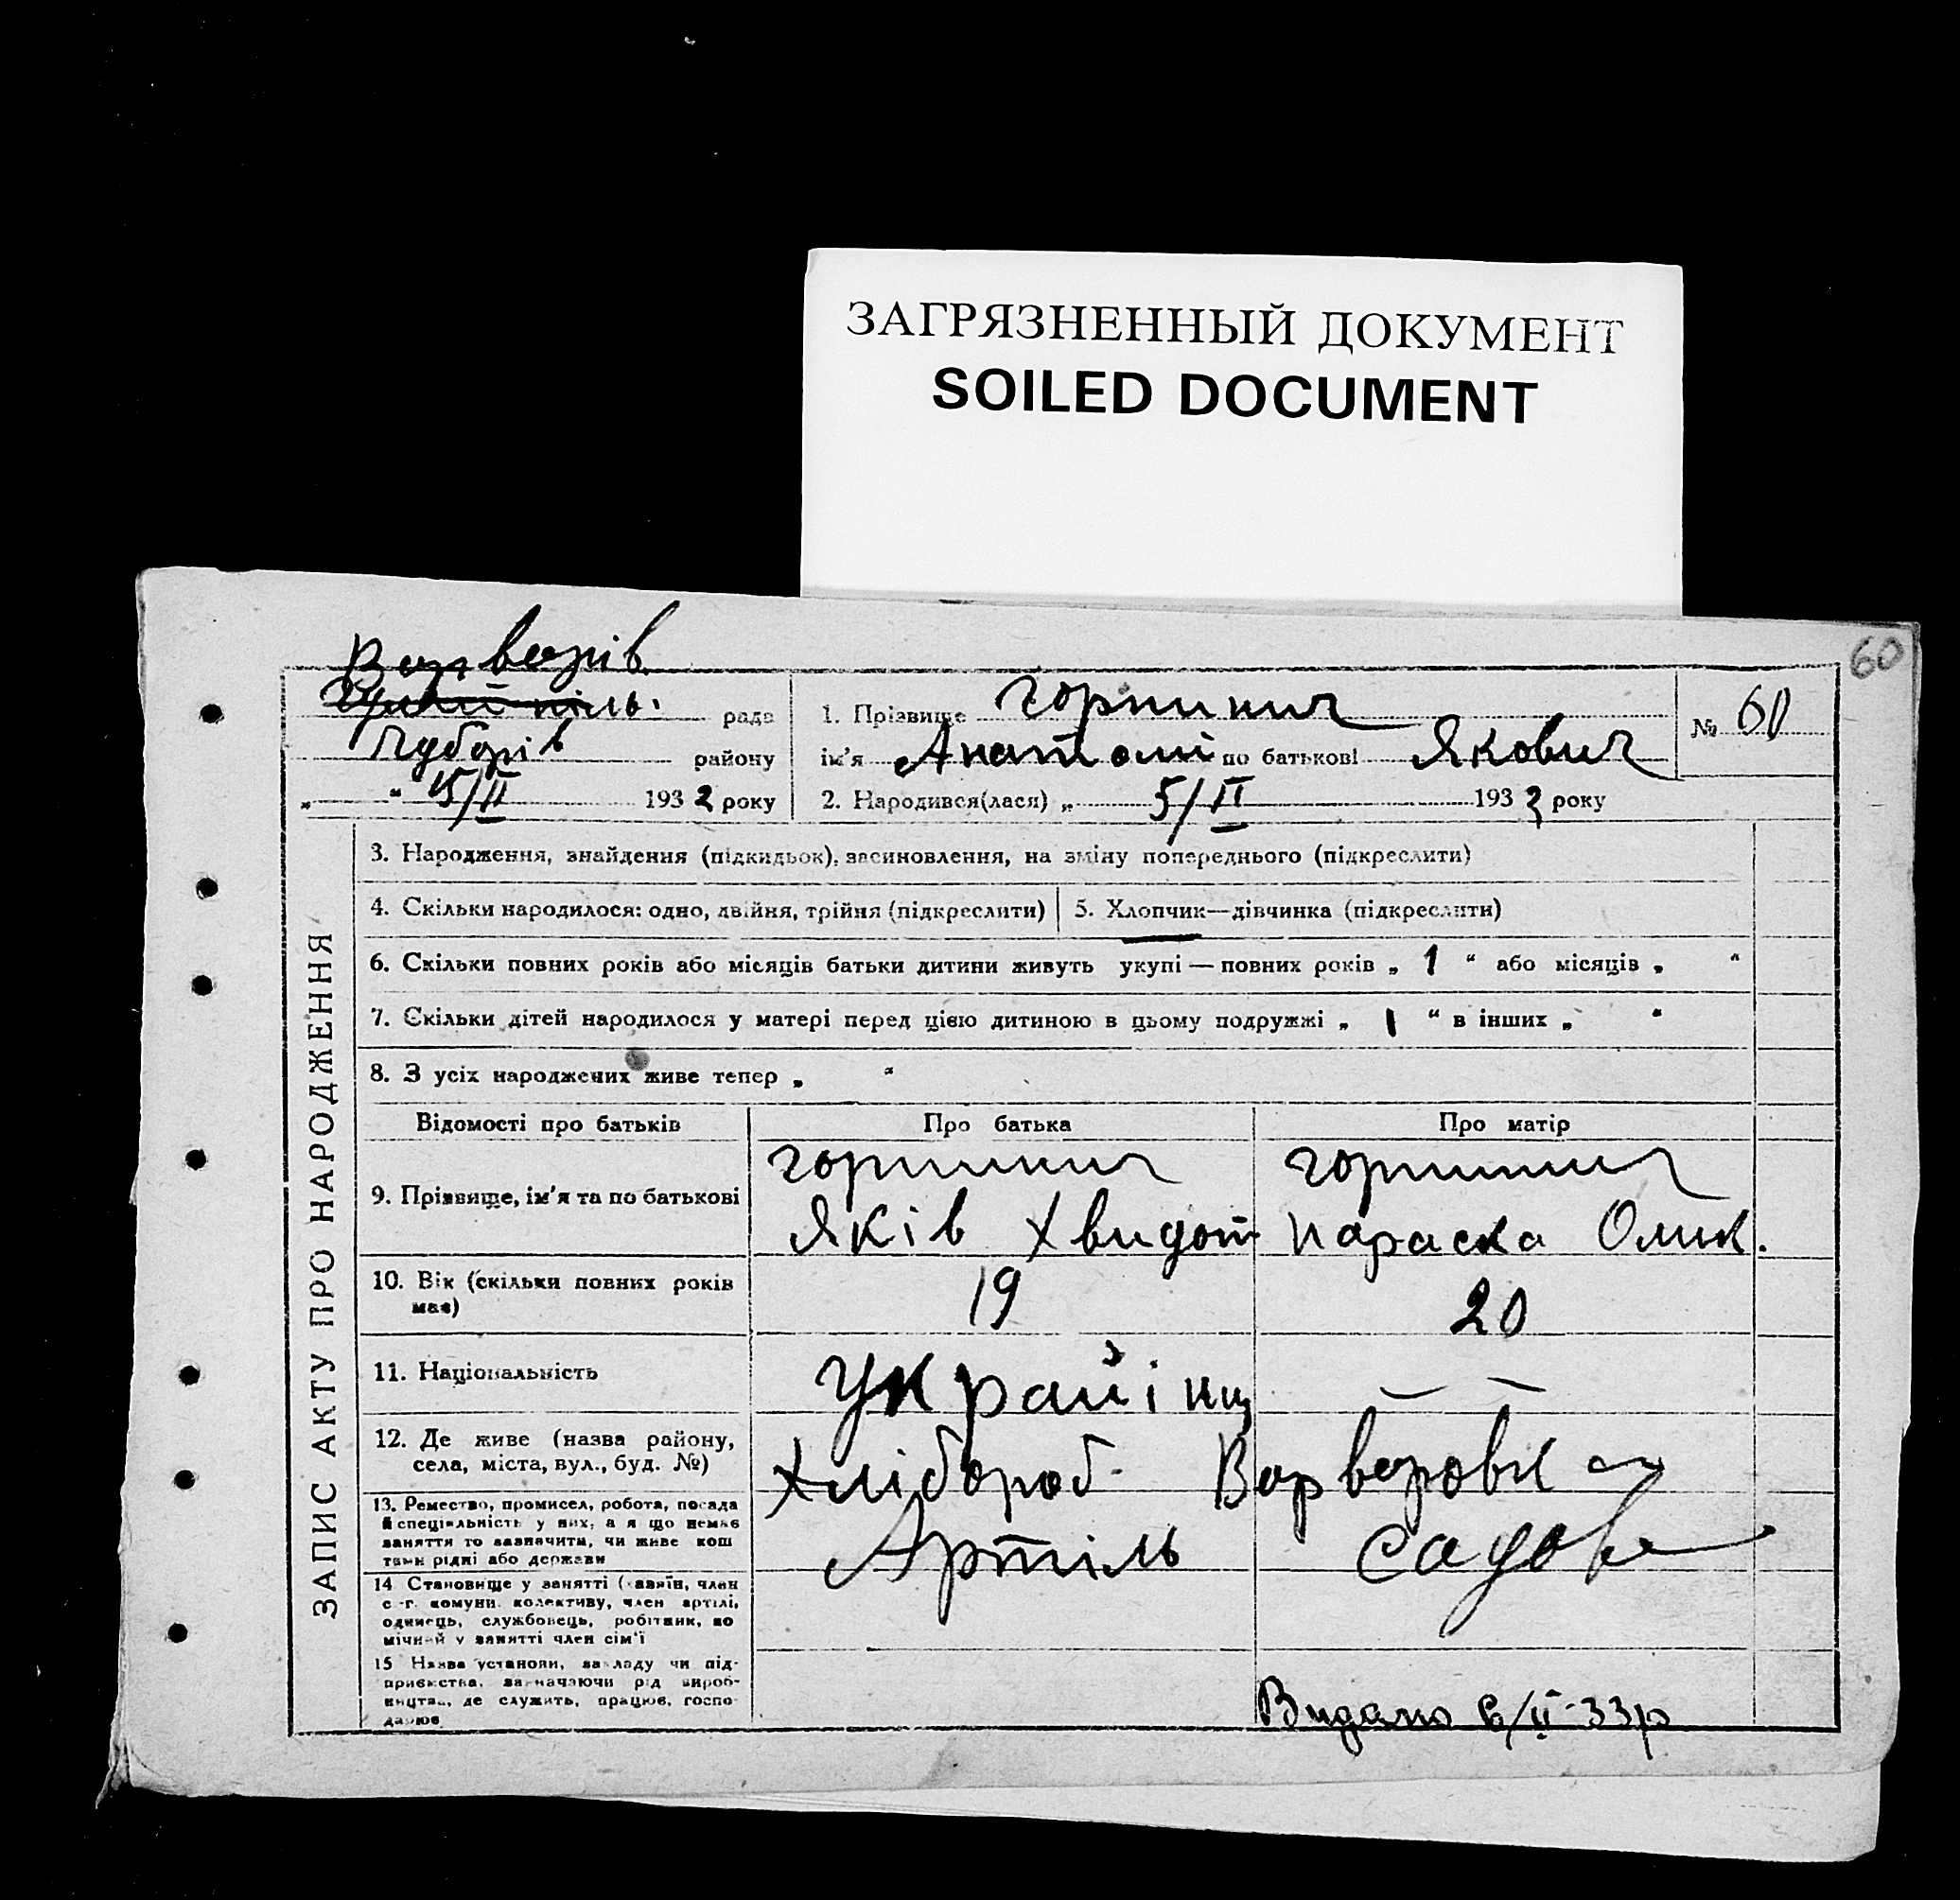 ЗАГРЯЗНЕННЫЙ ДОКУМЕНТ
SOILED DOCUMENT
60
Варварів
рада
району
„ “ 15/II 1932 року
1. Прізвище Горпинич
№ 60
ім’я Анатолі по батькові Якович
2. Народився(лася) „ 5/II 1932 року
ЗАПИС АКТУ ПРО НАРОДЖЕННЯ
3. Народження, знайдення (підкидьок), засиновлення, на зміну попереднього (підкреслити)
4. Скільки народилося: одно, двійня, трійня (підкреслити)
5. Хлопчик—дівчинка (підкреслити)
6. Скільки повних років або місяців батьки дитини живуть укупі — повних років „ 1 “ або місяців „ “
7. Скільки дітей народилося у матері перед цією дитиною в цьому подружжі „ 1 “ в інших „ “
8. З усіх народжених живе тепер „ “
Відомості про батьків
Про батька
Про матір
9. Прізвище, ім’я та по батькові
Горпинич
Яків Хвидот
Горпинич
Параска Олик.
10. Вік (скільки повних років
має)
19
20
11. Національність
Украйінц
— —
12. Де живе (назва району,
села, міста, вул., буд. №)
Хлібороб. Варваровк
13. Ремество, промисел, робота, посада
й спеціяльність у них, а я що немає
заняття то зазначити, чи живе кош
тами рідні або держави
Артіль Садова
14 Становище у занятті (хазяїн, член
с.-г. комуни. колективу, член артілі,
одинець, службовець, робітник, по
мічний у занятті член сім’ї
15 Назва установи, закладу чи під-
приємства, зазначаючи рід вироб-
ництва, де служить, працює, госпо-
дарює
Видано 6/II-33р